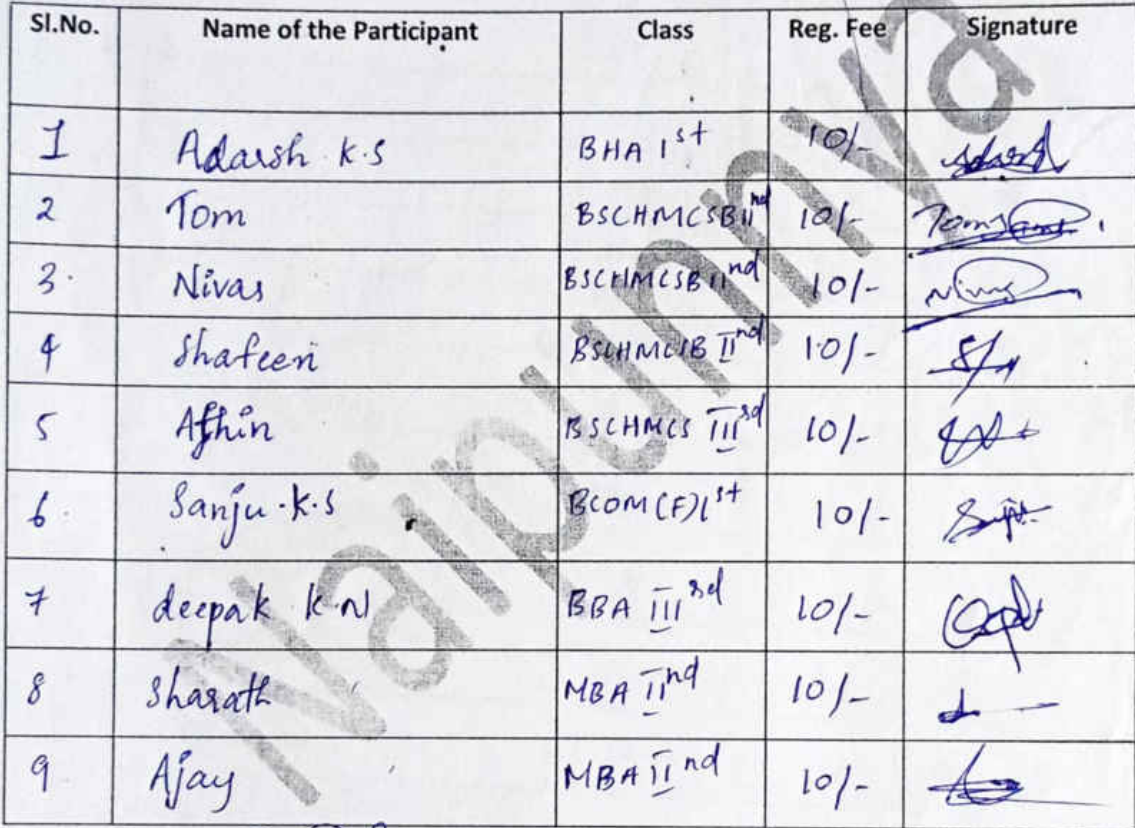 Sl.No. Name of the Participant Class Reg. Fee Signature
1 Adarsh K.S BHA 1st 10/- Adarsh
2 Tom BSCHMCSB IInd 10/- Tom
3. Nivas BSCHMCSB IInd 10/- Nivas
4 Shafeen BSCHMCSB IInd 10/-
5 Afhin BSCHMCS IIIrd 10/-
6. Sanju.K.S BCOM(F) 1st 10/-
7 deepak K.N BBA IIIrd 10/-
8 Sharath MBA IInd 10/-
9 Ajay MBA IInd 10/-
Naipunnya